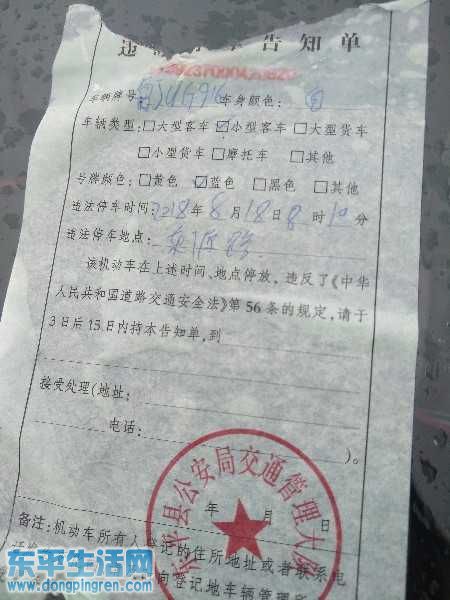 告知单
车辆牌号: 车身颜色: 白
车辆类型: □大型客车 ☑小型客车 □大型货车
□小型货车 □摩托车 □其他
号牌颜色: □黄色 ☑蓝色 □黑色 □其他
违法停车时间: 2018年8月18日8时10分
违法停车地点:
该机动车在上述时间、地点停放,违反了《中华
人民共和国道路交通安全法》第56条的规定,请于
3日后15日内持本告知单,到
接受处理(地址:
电话: )。
县公安局交通管理大
年 月 日
备注:机动车所有人登记的住所地址或者联系电
向登记地车辆管理所
东平生活网
www.dongpingren.com